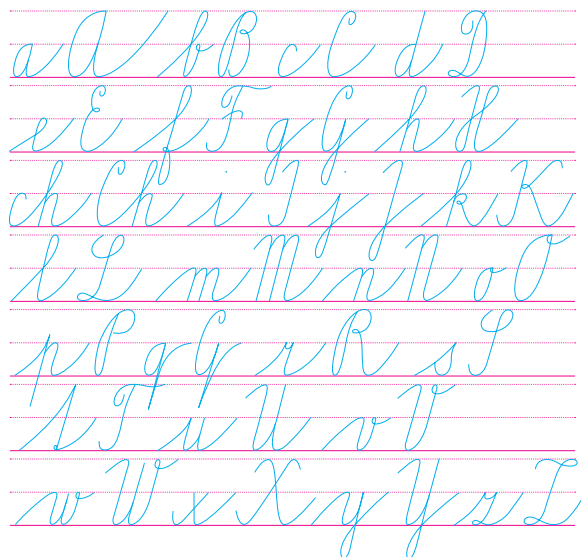 a A b B c C d D
e E f F g G h H
ch Ch i I j J k K
l L m M n N o O
p P q Q r R s S
t T u U v V
w W x X y Y z Z